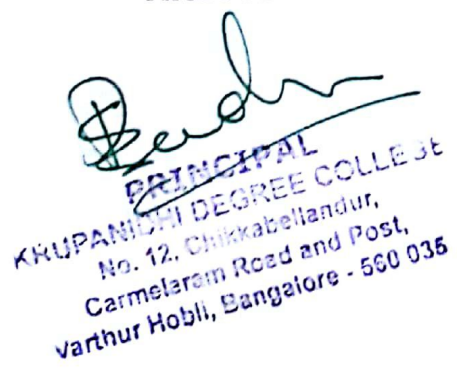 PRINCIPAL
KRUPANIDHI DEGREE COLLEGE
No. 12, Chikkabellandur,
Carmelaram Road and Post,
Varthur Hobli, Bangalore - 560 035